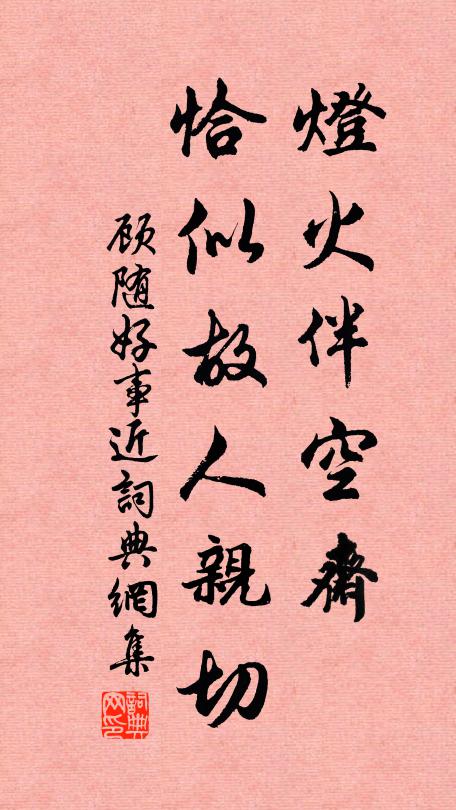 燈火伴空齋
恰似故人親切
顾随好事近詞典網集
詞典網印